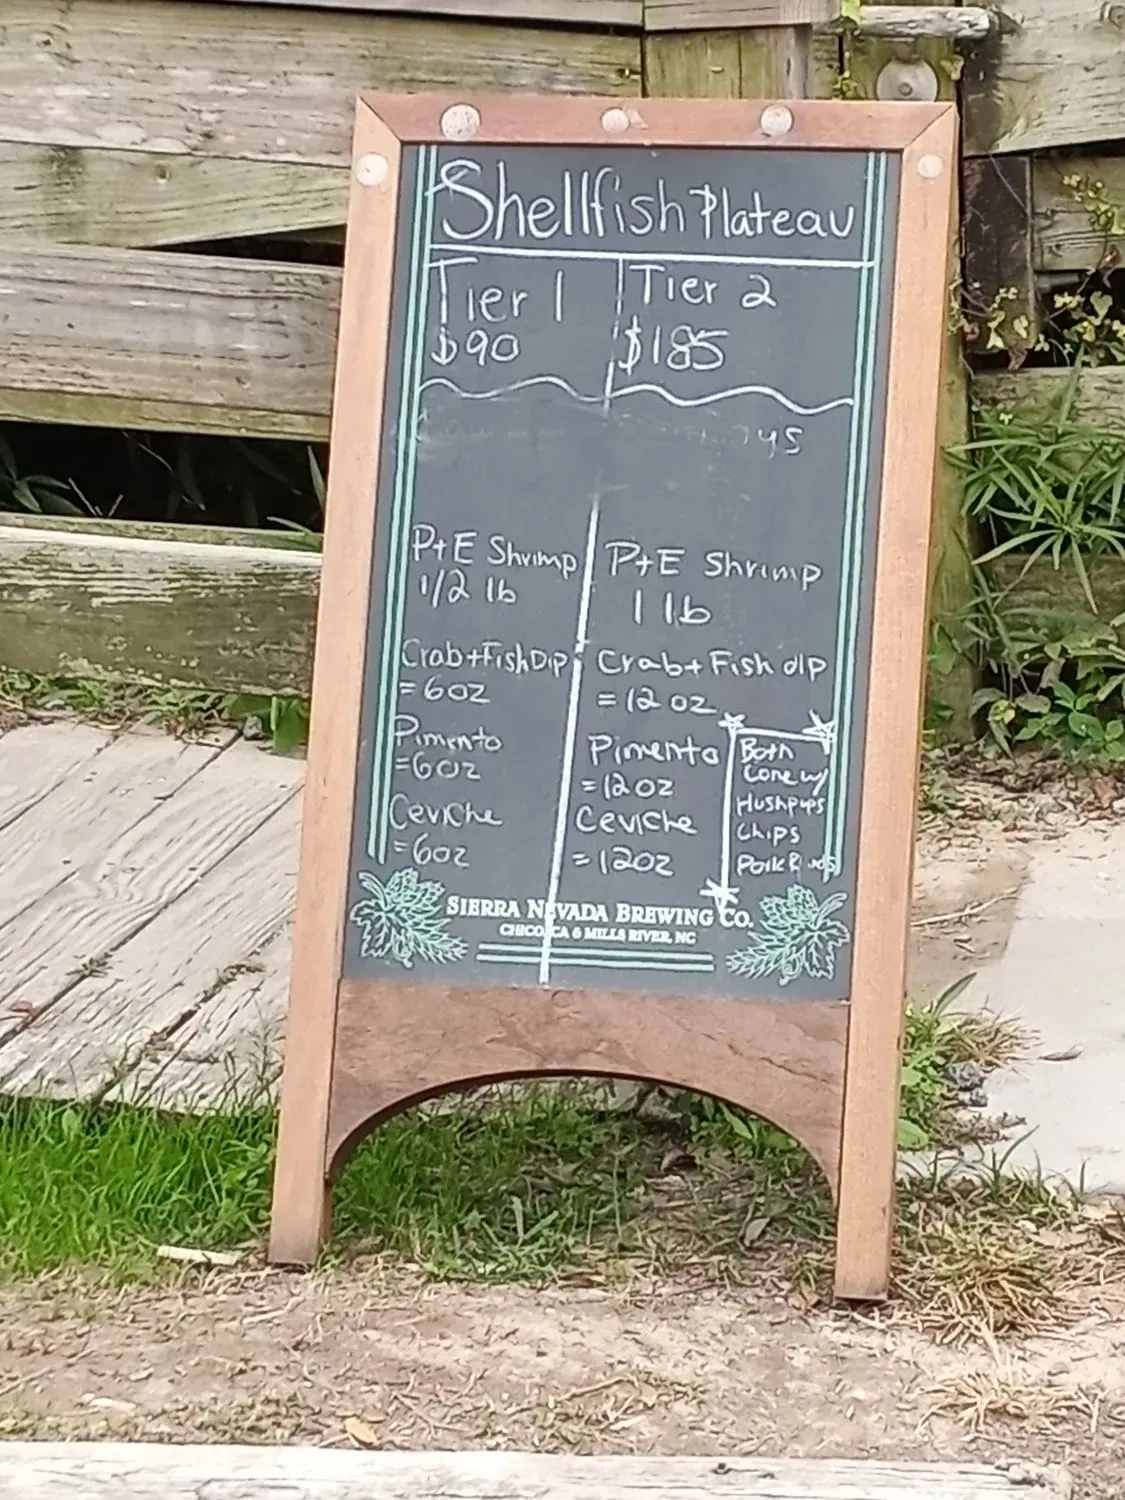 Shellfish Plateau
Tier 1
$90
Tier 2
$185
P+E Shrimp
1/2 lb
Crab+Fish Dip
=6oz
Pimento
=6oz
Ceviche
=6oz
P+E Shrimp
1 lb
Crab+Fish dip
=12 oz
Pimento
=12oz
Ceviche
=12oz
Both
Come w/
Hushpups
Chips
Pork Rinds
SIERRA NEVADA BREWING CO.
CHICO, CA & MILLS RIVER, NC